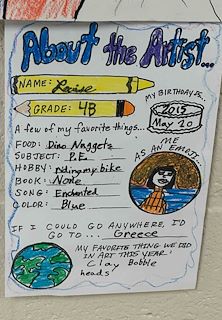 About the Artist...
NAME: Louise
GRADE: 4B
MY BIRTHDAY IS..
2015
May 20
A few of my favorite things...
FOOD: Dino Nuggets
SUBJECT: P.E.
HOBBY: riding my bike
BOOK: None
SONG: Enchanted
COLOR: Blue
ME
AS AN EMOJI..
IF I COULD GO ANYWHERE, I'D
GO TO.... Greece
MY FAVORITE THING WE DID
IN ART THIS YEAR:
Clay Bobble
heads